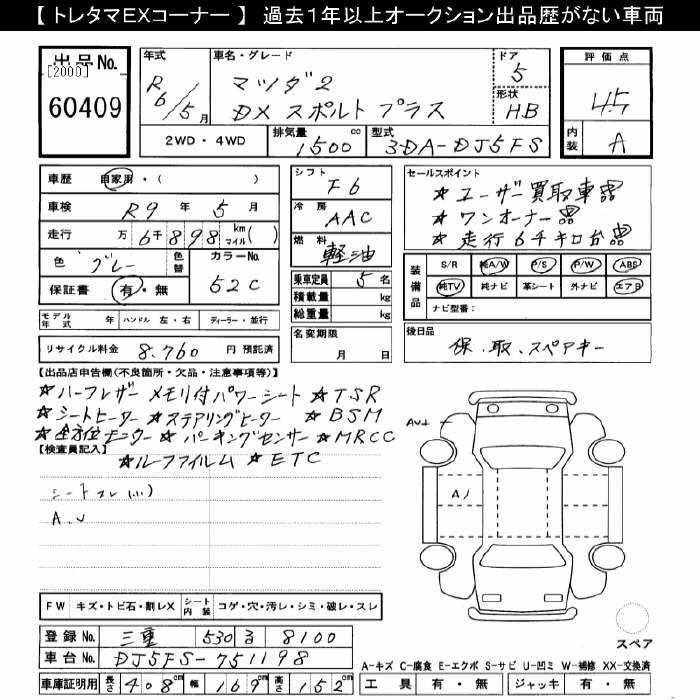 【トレタマEXコーナー】 過去1年以上オークション出品歴がない車両
出品No. [2000] 60409
年式 R6/5月
車名・グレード マツダ2 DX スポルト プラス
ドア 5
形状 HB
評価点 4.5
内装 A
2WD・4WD 排気量 1500 cc 型式 3DA-DJ5FS
車歴 自家用・( )
車検 R9年 5月
走行 万 6千898 km マイル( )
色 グレー 色替 カラーNo. 52C
保証書 有・無
モデル年式 年 ハンドル 左・右 ディーラー・並行
リサイクル料金 8,760 円 預託済
シフト F6
冷房 AAC
燃料 軽油
乗車定員 5名
積載量 kg
総重量 kg
名変期限 月 日
セールスポイント
☆ユーザー買取車!!!
☆ワンオーナー!!!
☆走行6千キロ台!!!
装備品 S/R 純A/W P/S P/W ABS
純TV 純ナビ 革シート 外ナビ エアB
ナビ型番:
後日品
保、取、スペアキー
【出品店申告欄(不良箇所・欠品・注意事項等)】
☆ハーフレザー メモリ付パワーシート ☆TSR
☆シートヒーター ☆ステアリングヒーター ☆BSM
☆全方位モニター ☆パーキングセンサー ☆MRCC
【検査員記入】
☆ルーフフィルム ☆ETC
シートスレ(小)
A、U
AU1
A1
FW キズ・トビ石・割レX シート内装 コゲ・穴・汚レ・シミ・破レ・スレ
登録No. 三重 530 る 8100
車台No. DJ5FS-751198
車庫証明用 長さ 408cm 幅 169cm 高さ 152cm
スペア
A-キズ C-腐食 E-エクボ S-サビ U-凹ミ W-補修 XX-交換済
工具 有・無 ジャッキ 有・無